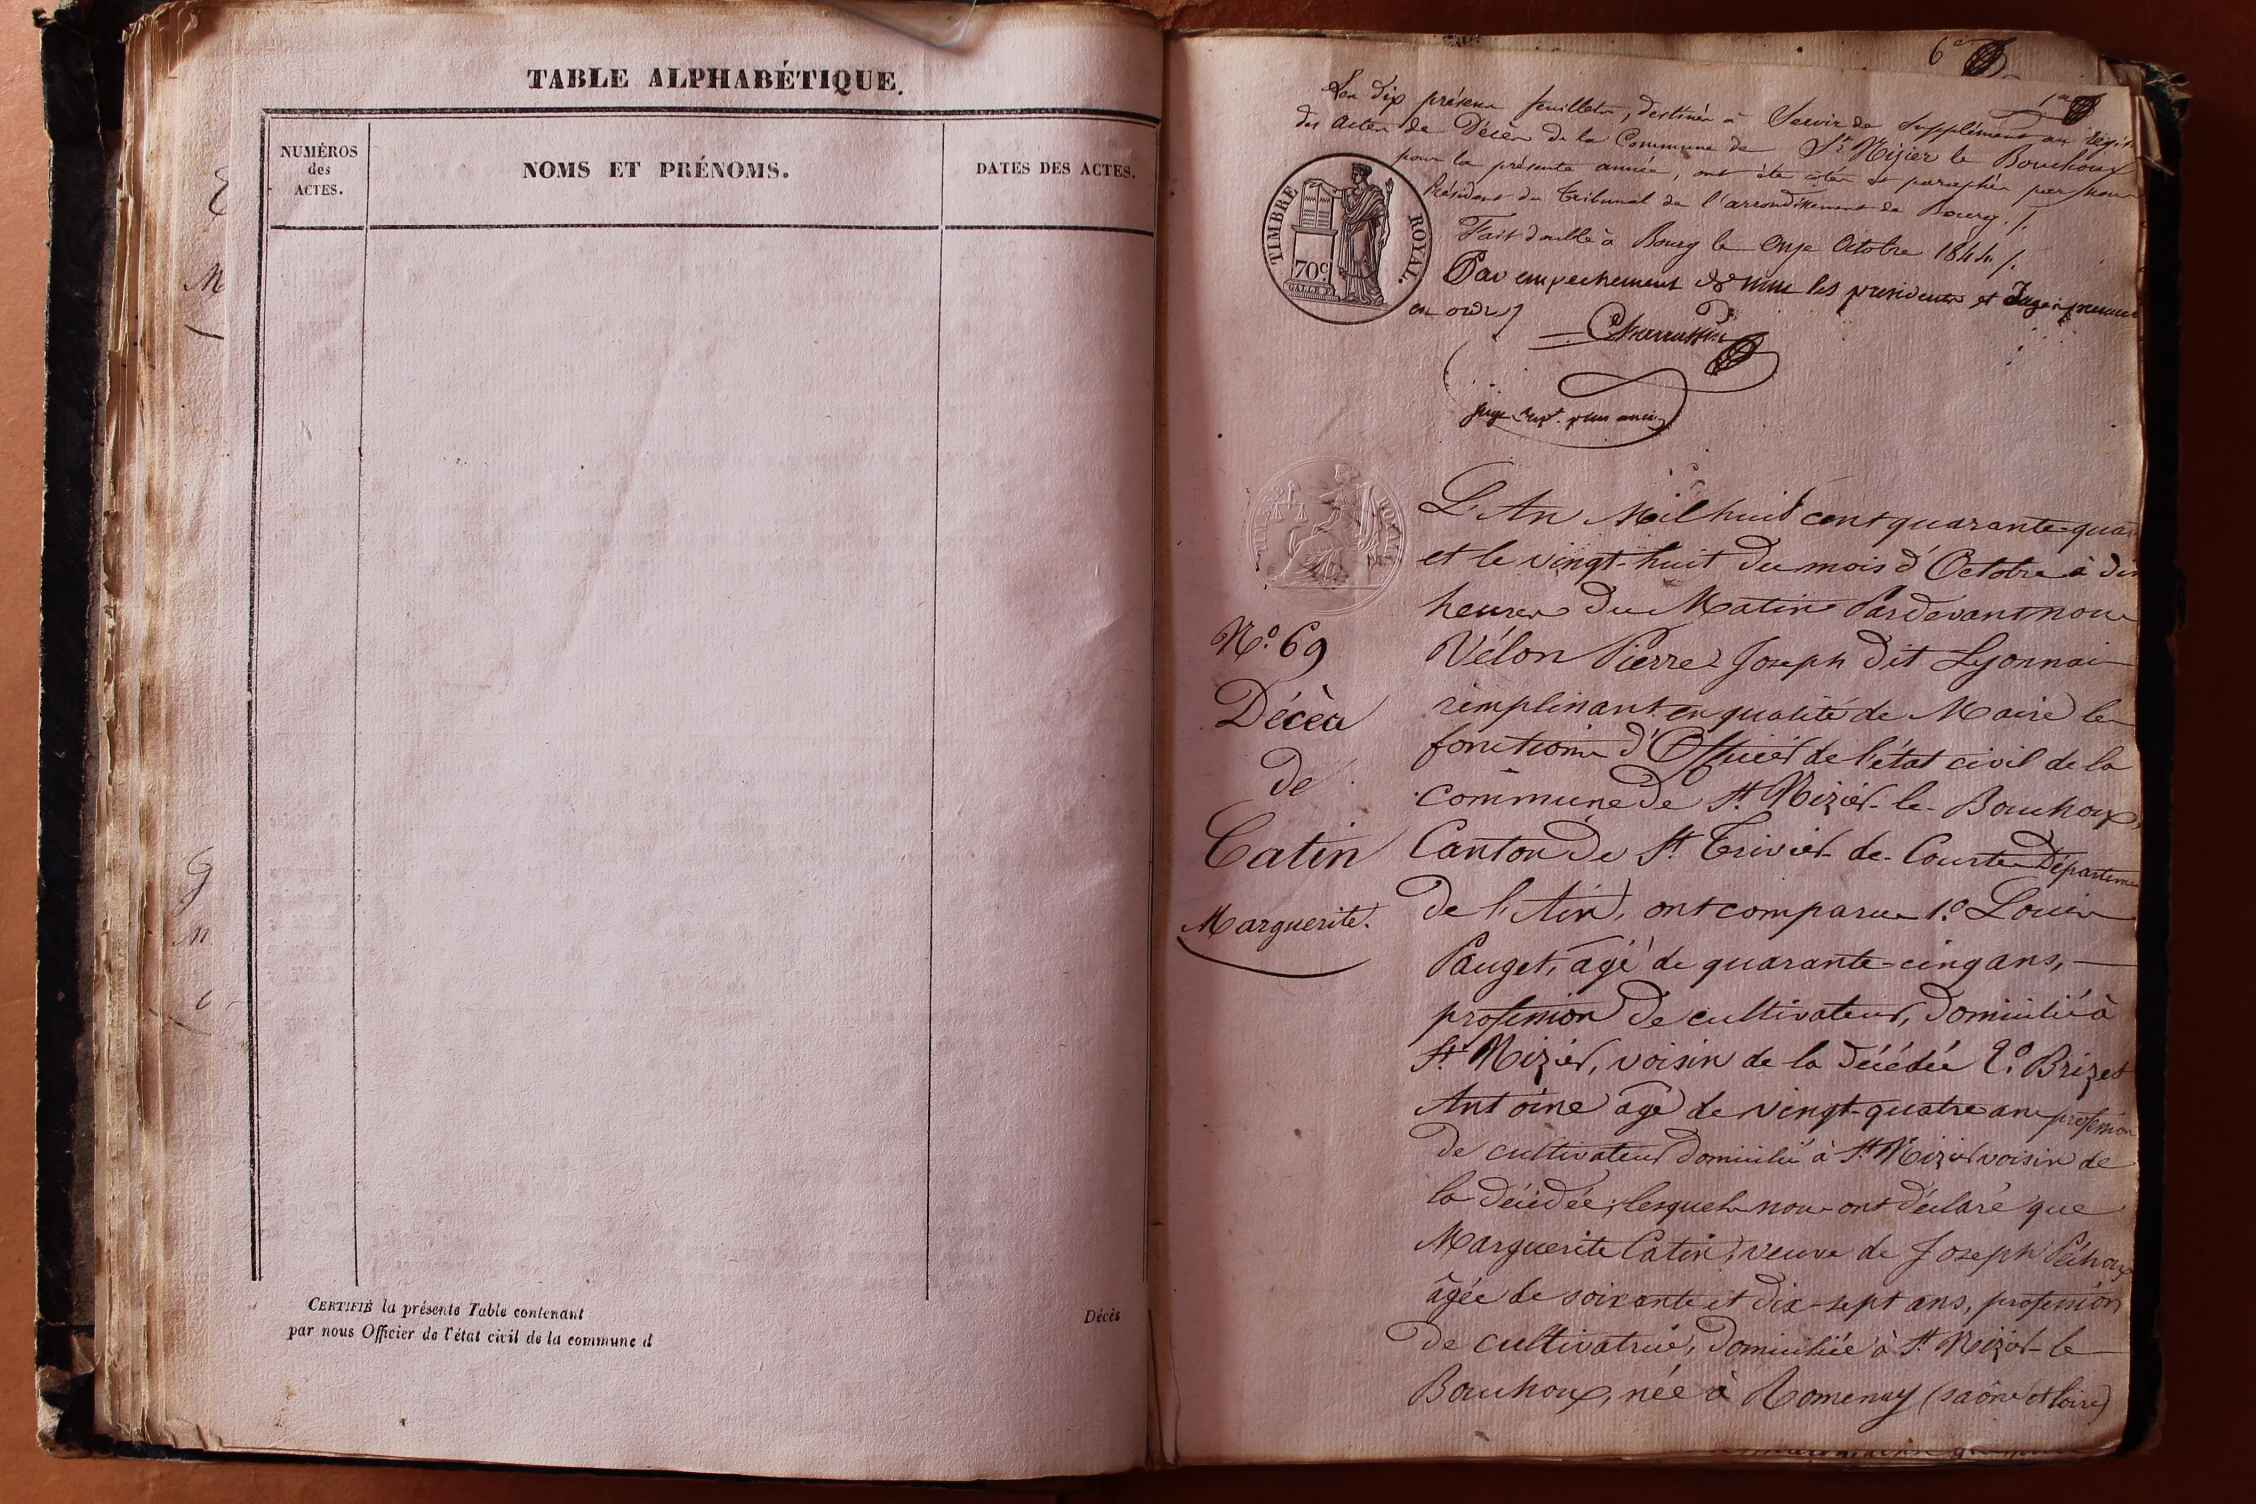 TABLE ALPHABÉTIQUE.
NUMÉROS
des
ACTES.
NOMS ET PRÉNOMS.
DATES DES ACTES.
CERTIFIÉ la présente Table contenant
Décès
par nous Officier de l'état civil de la commune d
6e
1er
Les dix présens feuillets, destinés à Servir de Supplément au Régis
des Actes de Décès de la Commune de St. Nizier le Bouchoux
pour la présente année, ont été cotés et paraphés par nous
Président du Tribunal de l'arrondissement de Bourg ./.
Fait double à Bourg le Onze Octobre 1844 ./.
Par empechement de mm les presidents et Juges premiers
en ordre
juge supt. plus ancien
TIMBRE ROYAL.
70c
L'An Mil huit cent quarante-quat
et le vingt-huit du mois d'Octobre à dix
heures du Matin Pardevant nous
Vélon Pierre Joseph dit Lyonnais
remplissant en qualité de Maire les
fonctions d'Officier de l'état civil de la
commune de St. Nizier-le-Bouchoux,
Canton de St. Trivier-de-Courtes Département
de l'Ain, ont comparu 1.o Louis
Pauget, âgé de quarante-cinq ans,
profession de cultivateur, domicilié à
St. Nizier, voisin de la décédée 2.o Brizet
Antoine âgé de vingt-quatre ans profession
de cultivateur domicilié à St. Nizier voisin de
la décédée, lesquels nous ont déclaré que
Marguerite Catin, veuve de Joseph Péchoux
âgée de soixante et dix-sept ans, profession
de cultivatrice, domiciliée à St. Nizier-le
Bouchoux, née à Romenay (saône et loire)
N.o 69
Décès
de
Catin
Marguerite.